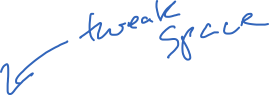 tweak
space